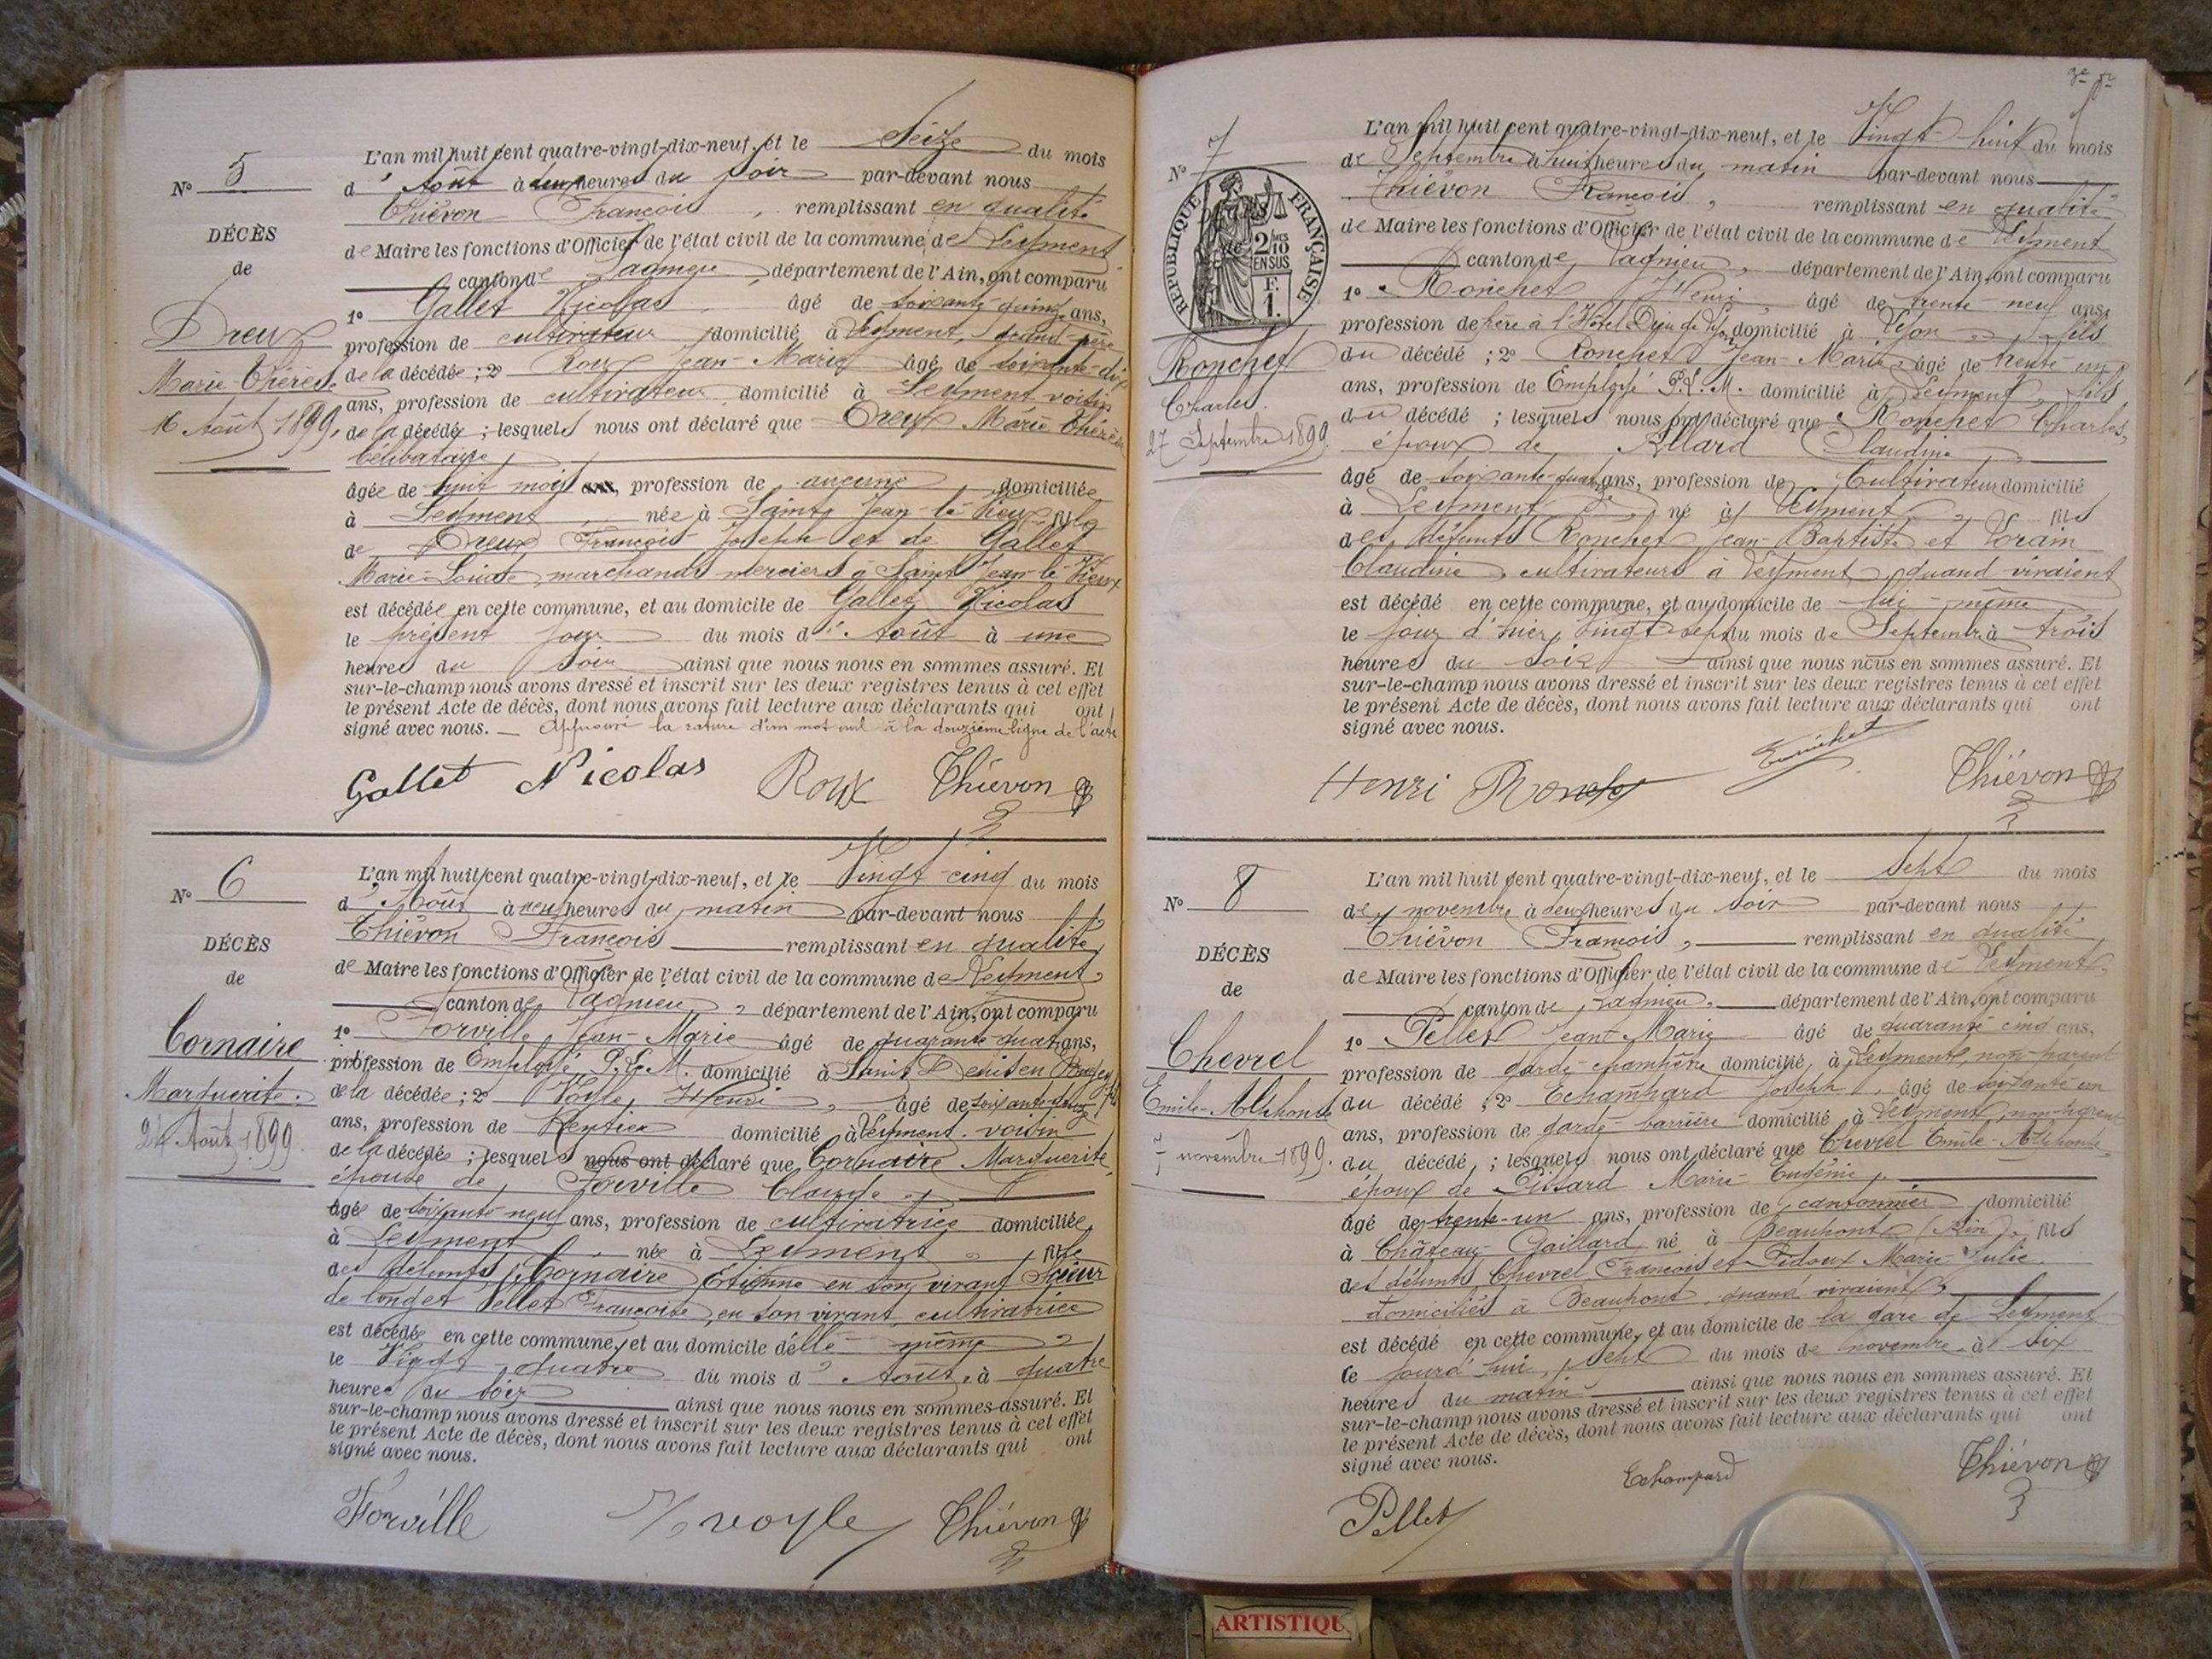 N° 5
DÉCÈS
de
Dreux
Marie-Thérèse
16 Août 1899.
L'an mil huit cent quatre-vingt-dix-neuf, et le Seize du mois
d'Août à heures du soir par-devant nous
Thiévon François, remplissant en qualité
de Maire les fonctions d'Officier de l'état civil de la commune de Leyment
canton de Lagnieu, département de l'Ain, ont comparu
1° Gallet Nicolas, âgé de soixante quinze ans,
profession de cultivateur, domicilié à Leyment, grand-père
de la décédée ; 2° Roux Jean-Marie âgé de soixante-dix
ans, profession de cultivateur domicilié à Leyment voisin
de la décédée ; lesquels nous ont déclaré que Dreux Marie Thérèse
célibataire
âgée de huit mois ans, profession de aucune domiciliée
à Leyment, née à Saint Jean-le-Vieux, fille
de Dreux François Joseph et de Gallet
Marie-Louise, marchands merciers à Saint Jean-le-Vieux
est décédée en cette commune, et au domicile de Gallet Nicolas
le présent jour du mois d'Août à une
heure du soir ainsi que nous nous en sommes assuré. Et
sur-le-champ nous avons dressé et inscrit sur les deux registres tenus à cet effet
le présent Acte de décès, dont nous avons fait lecture aux déclarants qui ont
signé avec nous. — Approuvé la rature d'un mot nul à la douzième ligne de l'acte
Gallet Nicolas Roux Thiévon
N° 6
DÉCÈS
de
Cornaire
Marguerite.
24 Août 1899.
L'an mil huit cent quatre-vingt-dix-neuf, et le Vingt-cinq du mois
d'Août à neuf heures du matin par-devant nous
Thiévon François remplissant en qualité
de Maire les fonctions d'Officier de l'état civil de la commune de Leyment
canton de Lagnieu, département de l'Ain, ont comparu
1° Forville Jean-Marie âgé de quarante-quatre ans,
profession de Employé P.L.M. domicilié à Saint Denis en Bugey fils
de la décédée ; 2° Voyle Henri, âgé de soixante-douze
ans, profession de Rentier domicilié à Leyment voisin
de la décédée ; lesquels nous ont déclaré que Cornaire Marguerite
épouse de Forville Claude
âgée de soixante-neuf ans, profession de cultivatrice domiciliée
à Leyment, née à Leyment, fille
des défunts Cornaire Étienne en son vivant Scieur
de long et Pellet Françoise, en son vivant cultivatrice
est décédée en cette commune, et au domicile d'elle-même
le Vingt-quatre du mois d'Août à quatre
heures du soir ainsi que nous nous en sommes assuré. Et
sur-le-champ nous avons dressé et inscrit sur les deux registres tenus à cet effet
le présent Acte de décès, dont nous avons fait lecture aux déclarants qui ont
signé avec nous.
Forville voyle Thiévon
N° 7
RÉPUBLIQUE FRANÇAISE
2/10 EN SUS
F. 1.
Ronchet
Charles.
27 Septembre 1899.
L'an mil huit cent quatre-vingt-dix-neuf, et le Vingt-huit du mois
de Septembre à huit heures du matin par-devant nous
Thiévon François, remplissant en qualité
de Maire les fonctions d'Officier de l'état civil de la commune de Leyment
canton de Lagnieu, département de l'Ain, ont comparu
1° Ronchet Henri, âgé de trente-neuf ans,
profession de frère à l'Hôtel Dieu de Lyon domicilié à Lyon, fils
du décédé ; 2° Ronchet Jean-Marie, âgé de trente un
ans, profession de Employé P.L.M. domicilié à Leyment, fils
du décédé ; lesquels nous ont déclaré que Ronchet Charles,
époux de Allard Claudine
âgé de soixante-quatre ans, profession de Cultivateur domicilié
à Leyment, né à Leyment, fils
des défunts Ronchet Jean-Baptiste et
Claudine, cultivateurs à Leyment quand vivaient
est décédé en cette commune, et au domicile de lui-même
le jour d'hier, Vingt sept du mois de Septembre à trois
heures du soir ainsi que nous nous en sommes assuré. Et
sur-le-champ nous avons dressé et inscrit sur les deux registres tenus à cet effet
le présent Acte de décès, dont nous avons fait lecture aux déclarants qui ont
signé avec nous.
Henri Ronchet Thiévon
N° 8
DÉCÈS
de
Chevrel
Emile-Alphonse
7 novembre 1899.
L'an mil huit cent quatre-vingt-dix-neuf, et le Sept du mois
de novembre à deux heures du soir par-devant nous
Thiévon François, remplissant en qualité
de Maire les fonctions d'Officier de l'état civil de la commune de Leyment
canton de Lagnieu, département de l'Ain, ont comparu
1° Pellet Jean-Marie âgé de quarante cinq ans,
profession de garde-champêtre domicilié à Leyment, non-parent
du décédé ; 2° Echampard Joseph, âgé de soixante un
ans, profession de garde-barrière domicilié à Leyment, non-parent
du décédé ; lesquels nous ont déclaré que Chevrel Emile-Alphonse
époux de Pissard Marie-Eugénie,
âgé de trente-un ans, profession de cantonnier domicilié
à Château-Gaillard né à Beaupont (Ain), fils
des défunts Chevrel François et Pidoux Marie-Julie
domiciliés à Beaupont quand vivaient
est décédé en cette commune, et au domicile de la gare de Leyment
le jourd'hui, sept du mois de novembre à six
heures du matin ainsi que nous nous en sommes assuré. Et
sur-le-champ nous avons dressé et inscrit sur les deux registres tenus à cet effet
le présent Acte de décès, dont nous avons fait lecture aux déclarants qui ont
signé avec nous.
Pellet Echampard Thiévon
ARTISTIQU